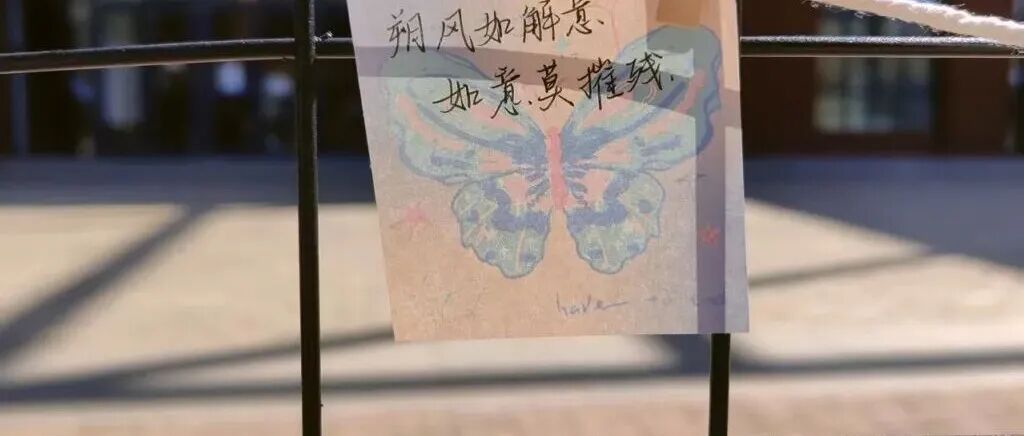 朔风如解意
如意莫摧残.
have